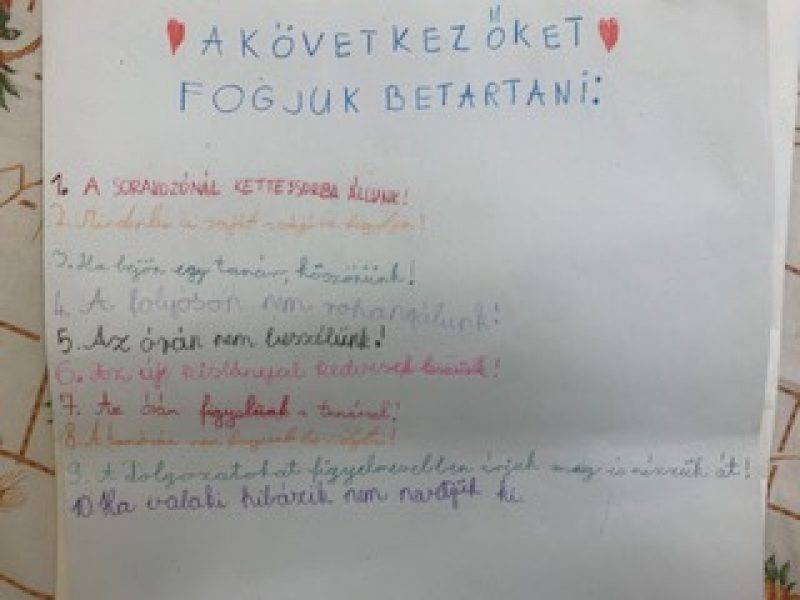 A KÖVETKEZŐKET
FOGJUK BETARTANI:
1. A SORAKOZÓNÁL KETTESSORBA ÁLLUNK!
2. Mindenki a saját
3. Ha bejön egy tanár, köszönünk!
4. A folyoson nem rohangálunk!
5. Az órán nem beszélünk!
6. Az új kislánnyal kedvesek
7. Az órán figyelünk a tanárra!
8. A
9. A Dolgozatokat figyelmesebben írjuk meg is nézzük át!
10. Ha valaki hibázik nem nevetjük ki